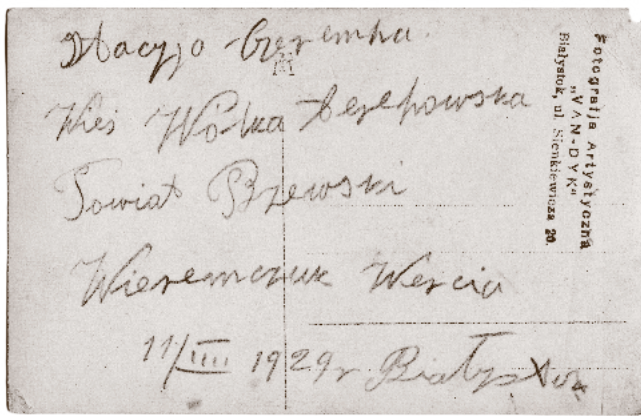 Stacyjo Czeremha.
Wieś Wólka terehowska
Powiat
Wieremczuk Wercia
11/IIII 1929 r Białystok
Fotografja Artystyczna
„VAN-DYK"
Białystok, ul. Sienkiewicza 20.